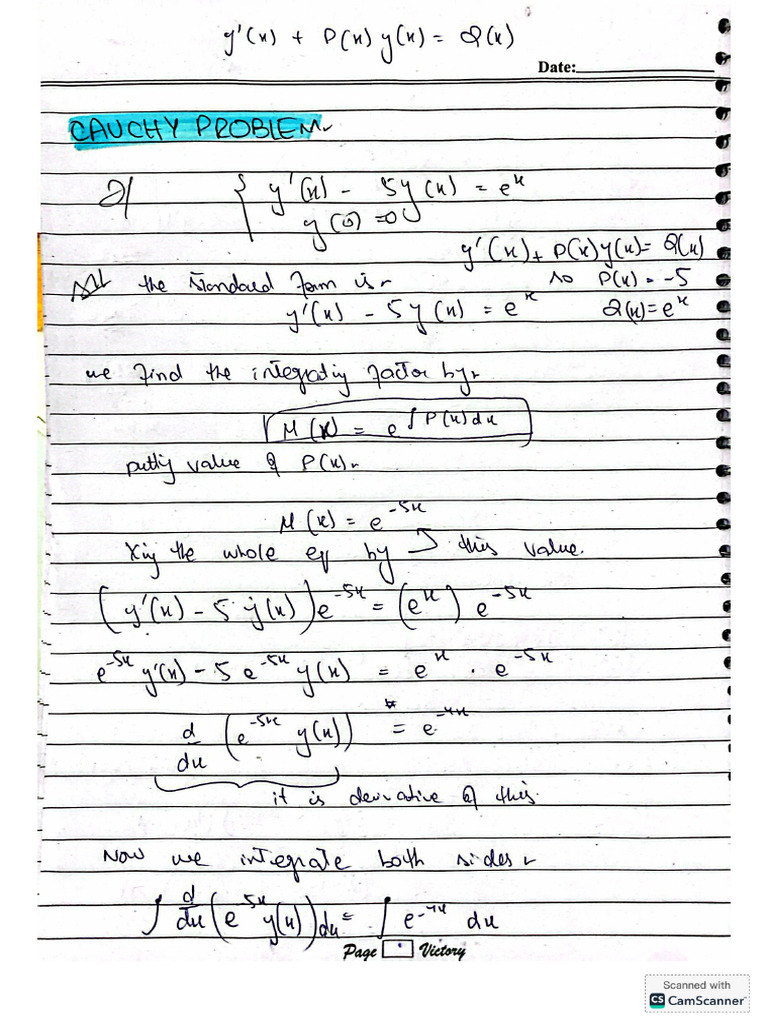 y'(x) + P(x) y(x) = Q(x)
Date:
CAUCHY PROBLEM
{ y'(x) - 5y(x) = e^x
y(0) = 0
y'(x) + P(x)y(x) = Q(x)
the standard form is
so P(x) = -5
y'(x) - 5y(x) = e^x
Q(x) = e^x
we find the integrating factor by
M(x) = e^∫P(x)dx
putting value of P(x)
M(x) = e^-5x
Xing the whole eq by this value.
(y'(x) - 5 y(x)) e^-5x = (e^x) e^-5x
e^-5x y'(x) - 5 e^-5x y(x) = e^x . e^-5x
d/dx (e^-5x y(x)) = e^-4x
it is derivative of this.
Now we integrate both sides
∫ d/dx (e^5x y(x)) dx = ∫ e^-4x dx
Page Victory
Scanned with
CS CamScanner